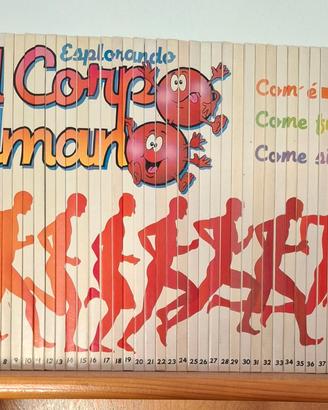 Esplorando
l Corpo
Uman
Com'è
Come fu
Come si
8 9 10 11 12 13 14 15 16 17 18 19 20 21 22 23 24 25 26 27 28 29 30 31 32 33 34 35 36 37